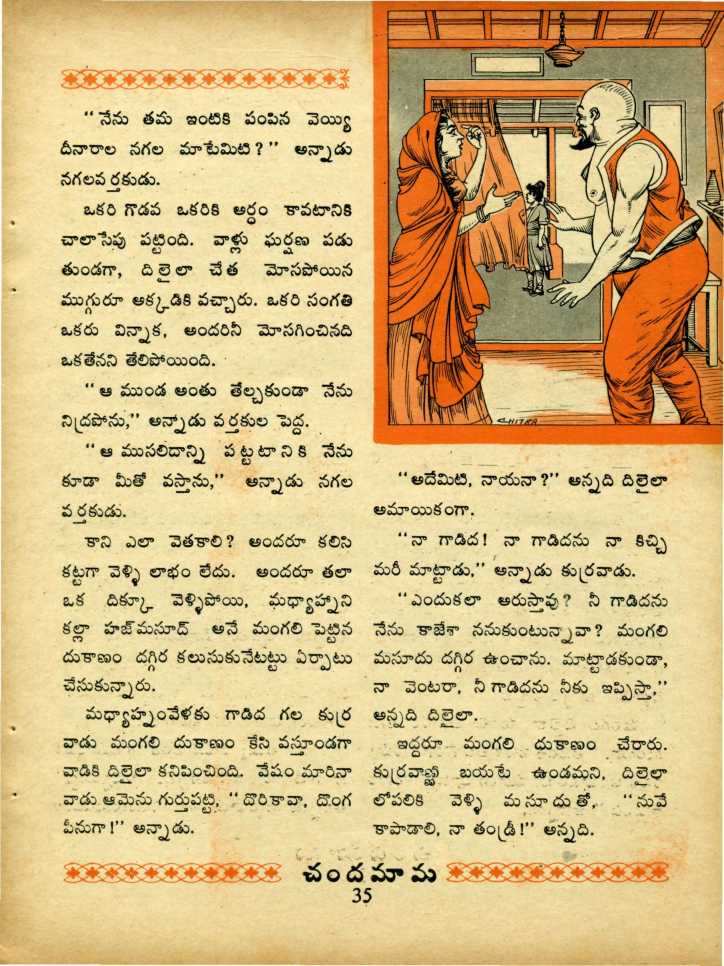 "నేను తమ ఇంటికి పంపిన వెయ్యి
దీనారాల నగల మాటేమిటి?" అన్నాడు
నగలవర్తకుడు.
ఒకరి గొడవ ఒకరికి అర్థం కావటానికి
చాలాసేపు పట్టింది. వాళ్లు ఘర్షణ పడు
తుండగా, దిలైలా చేత మోసపోయిన
ముగ్గురూ అక్కడికి వచ్చారు. ఒకరి సంగతి
ఒకరు విన్నాక, అందరినీ మోసగించినది
ఒకతేనని తేలిపోయింది.
"ఆ ముండ అంతు తేల్చకుండా నేను
నిద్రపోను," అన్నాడు వర్తకుల పెద్ద.
"ఆ ముసలిదాన్ని పట్టటానికి నేను
కూడా మీతో వస్తాను," అన్నాడు నగల
వర్తకుడు.
కాని ఎలా వెతకాలి? అందరూ కలిసి
కట్టగా వెళ్ళి లాభం లేదు. అందరూ తలా
ఒక దిక్కూ వెళ్ళిపోయి, మధ్యాహ్నాని
కల్లా హజ్‌మసూద్ అనే మంగలి పెట్టిన
దుకాణం దగ్గిర కలుసుకునేటట్టు ఏర్పాటు
చేసుకున్నారు.
మధ్యాహ్నంవేళకు గాడిద గల కుర్ర
వాడు మంగలి దుకాణం కేసి వస్తూండగా
వాడికి దిలైలా కనిపించింది. వేషం మారినా
వాడు ఆమెను గుర్తుపట్టి, "దొరికావా, దొంగ
పీనుగా!" అన్నాడు.
CHITRA
"అదేమిటి, నాయనా?" అన్నది దిలైలా
అమాయికంగా.
"నా గాడిద! నా గాడిదను నా కిచ్చి
మరీ మాట్లాడు," అన్నాడు కుర్రవాడు.
"ఎందుకలా అరుస్తావు? నీ గాడిదను
నేను కాజేశా ననుకుంటున్నావా? మంగలి
మసూదు దగ్గిర ఉంచాను. మాట్లాడకుండా,
నా వెంటరా, నీ గాడిదను నీకు ఇప్పిస్తా,"
అన్నది దిలైలా.
ఇద్దరూ మంగలి దుకాణం చేరారు.
కుర్రవాణ్ణి బయటే ఉండమని, దిలైలా
లోపలికి వెళ్ళి మసూదుతో, "నువే
కాపాడాలి, నా తండ్రీ!" అన్నది.
చందమామ
35